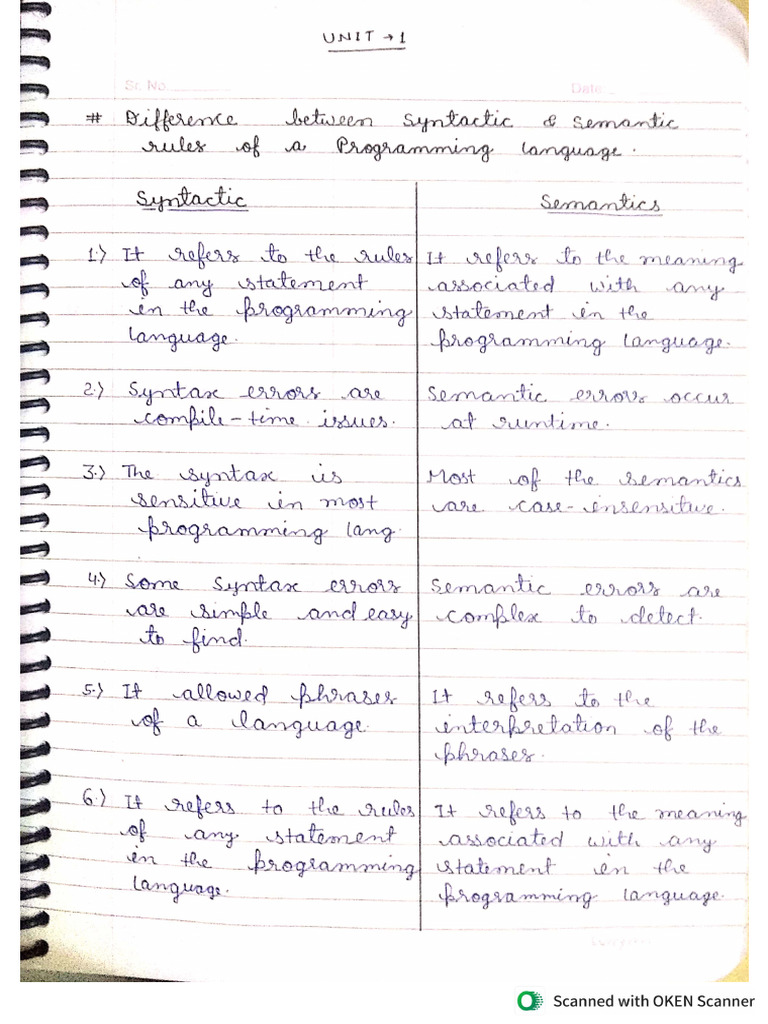 UNIT → 1
Sr. No.
Date
# Difference between Syntactic & Semantic
rules of a Programming language.
Syntactic
1.) It refers to the rules
of any statement
in the programming
language.
2.) Syntax errors are
compile-time issues.
3.) The syntax is
sensitive in most
programming lang.
4.) Some syntax errors
are simple and easy
to find.
5.) It allowed phrases
of a language.
6.) It refers to the rules
of any statement
in the programming
language.
Semantics
It refers to the meaning
associated with any
statement in the
programming language.
Semantic errors occur
at runtime.
Most of the semantics
are case-insensitive.
Semantic errors are
complex to detect.
It refers to the
interpretation of the
phrases.
It refers to the meaning
associated with any
statement in the
programming language.
Scanned with OKEN Scanner